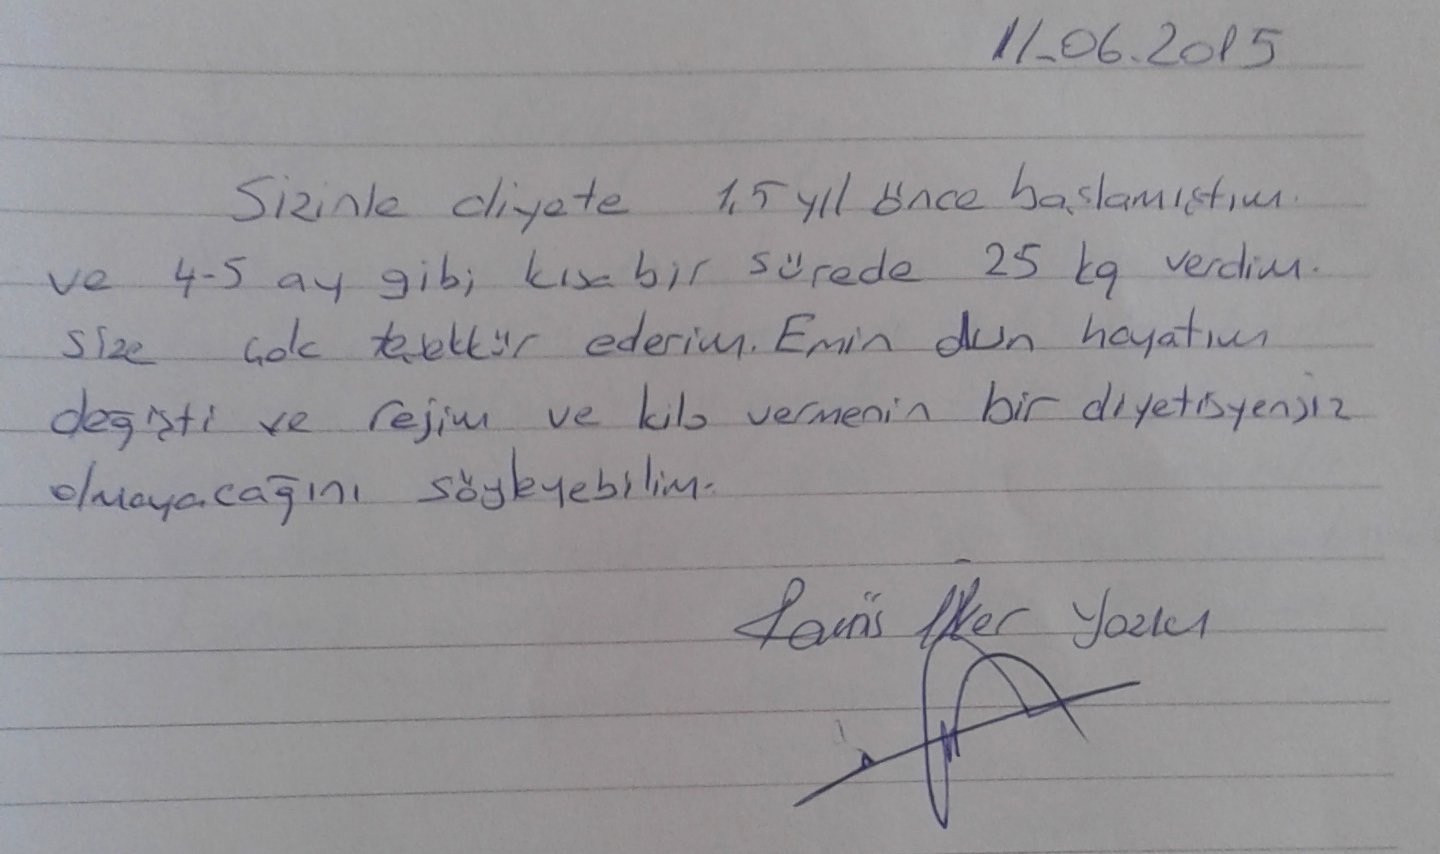 11.06.2015
Sizinle diyete 1,5 yıl önce başlamıştım.
ve 4-5 ay gibi kısa bir sürede 25 kg verdim.
size çok teşekkür ederim. Emin olun hayatım
değişti ve rejim ve kilo vermenin bir diyetisyensiz
olmayacağını söyleyebilim.
İlker Yazıcı